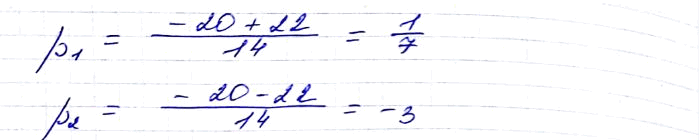 p₁ = (-20+22)/14 = 1/7
p₂ = (-20-22)/14 = -3